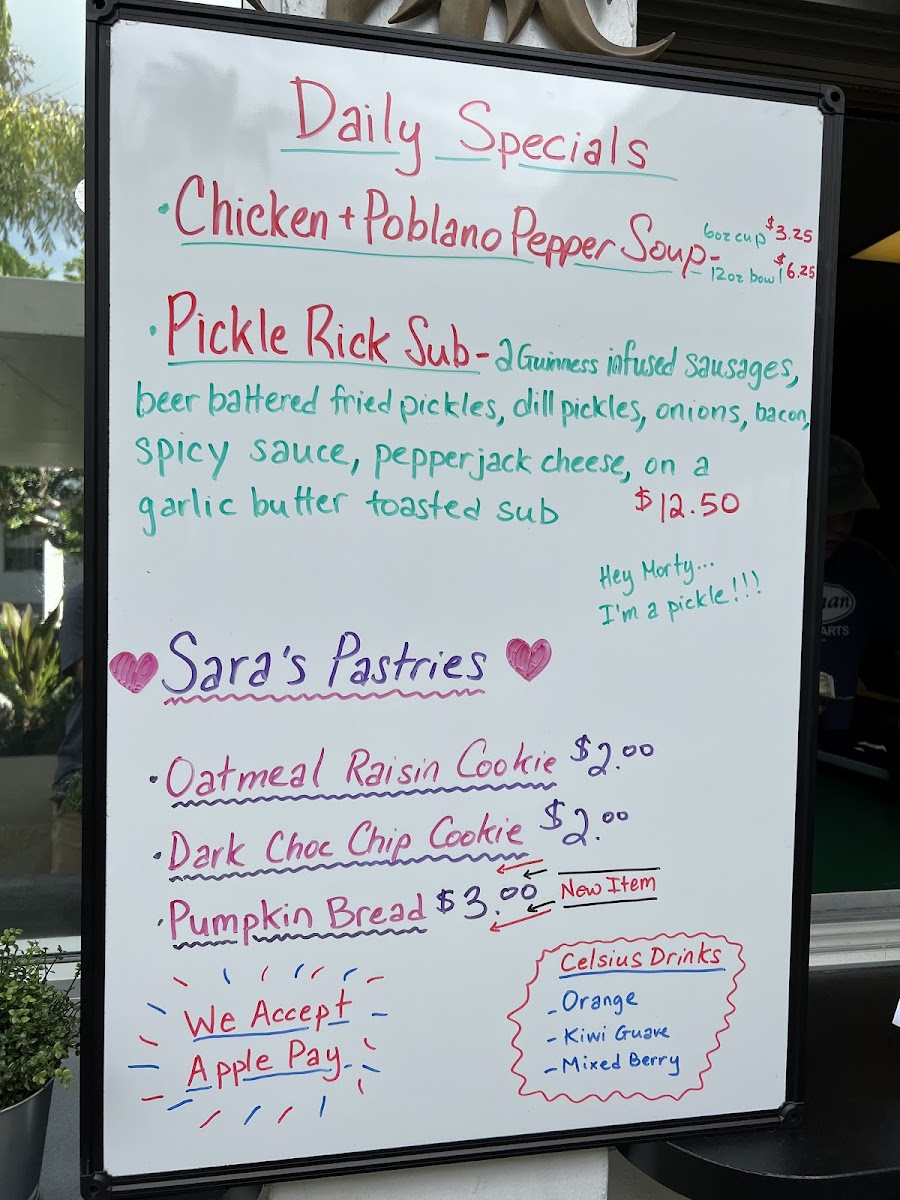 Daily Specials
• Chicken + Poblano Pepper Soup -
6oz cup $3.25
12oz bowl $6.25
• Pickle Rick Sub - 2 Guinness infused sausages,
beer battered fried pickles, dill pickles, onions, bacon,
spicy sauce, pepperjack cheese, on a
garlic butter toasted sub $12.50
Hey Morty...
I'm a pickle!!!
Sara's Pastries
• Oatmeal Raisin Cookie $2.00
• Dark Choc Chip Cookie $2.00
• Pumpkin Bread $3.00 New Item
We Accept
Apple Pay
Celsius Drinks
- Orange
- Kiwi Guave
- Mixed Berry